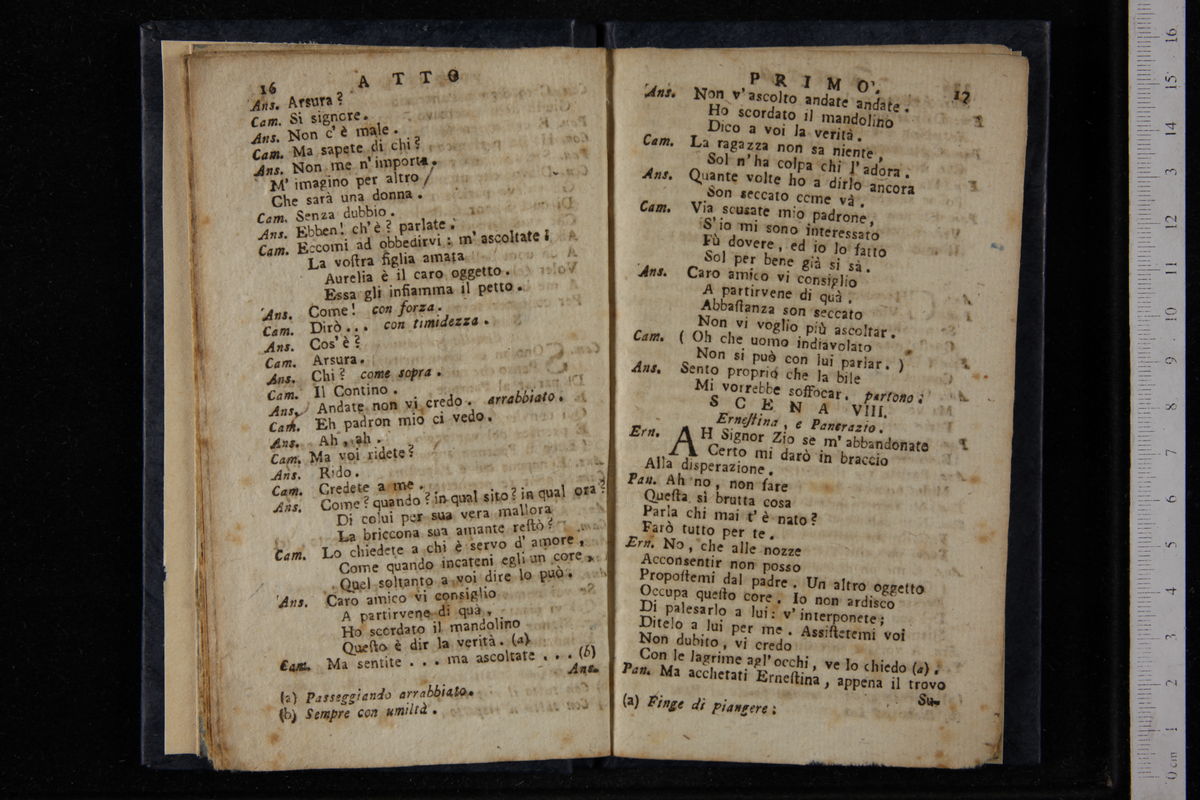 16 ATTO
Ans. Arsura?
Cam. Si signore.
Ans. Non c'è male.
Cam. Ma sapete di chi?
Ans. Non me n'importa.
M'imagino per altro
Che sarà una donna.
Cam. Senza dubbio.
Ans. Ebben! ch'è? parlate.
Cam. Eccomi ad obbedirvi: m'ascoltate:
La voſtra figlia amata
Aurelia è il caro oggetto.
Essa gli infiamma il petto.
Ans. Come! con forza.
Cam. Dirò... con timidezza.
Ans. Cos'è?
Cam. Arsura.
Ans. Chi? come sopra.
Cam. Il Contino.
Ans. Andate non vi credo. arrabbiato.
Cam. Eh padron mio ci vedo.
Ans. Ah, ah.
Cam. Ma voi ridete?
Ans. Rido.
Cam. Credete a me.
Ans. Come? quando? in qual sito? in qual ora?
Di colui per sua vera mallora
La briccona sua amante reſtò?
Cam. Lo chiedete a chi è servo d'amore,
Come quando incateni egli un core,
Quel soltanto a voi dire lo può.
Ans. Caro amico vi consiglio
A partirvene di quà,
Ho scordato il mandolino
Queſto è dir la verità. (a)
Cam. Ma sentite... ma ascoltate... (b)
Ans.
(a) Passeggiando arrabbiato.
(b) Sempre con umiltà.
PRIMO. 17
Ans. Non v'ascolto andate andate.
Ho scordato il mandolino
Dico a voi la verità.
Cam. La ragazza non sa niente,
Sol n'ha colpa chi l'adora.
Ans. Quante volte ho a dirlo ancora
Son seccato come và.
Cam. Via scusate mio padrone,
S'io mi sono interessato
Fù dovere, ed io lo fatto
Sol per bene già si sà.
Ans. Caro amico vi consiglio
A partirvene di quà.
Abbaſtanza son seccato
Non vi voglio più ascoltar.
Cam. (Oh che uomo indiavolato
Non si può con lui parlar.)
Ans. Sento proprio che la bile
Mi vorrebbe soffocar. partono.
SCENA VIII.
Erneſtina, e Panerazio.
Ern. AH Signor Zio se m'abbandonate
Certo mi darò in braccio
Alla disperazione.
Pan. Ah no, non fare
Queſta sì brutta cosa
Parla chi mai t'è nato?
Farò tutto per te.
Ern. No, che alle nozze
Acconsentir non posso
Propoſtemi dal padre. Un altro oggetto
Occupa queſto core. Io non ardisco
Di palesarlo a lui: v'interponete;
Ditelo a lui per me. Assiſtetemi voi
Non dubito, vi credo
Con le lagrime agl'occhi, ve lo chiedo (a).
Pan. Ma acchetati Erneſtina, appena il trovo
Su-
(a) Finge di piangere: